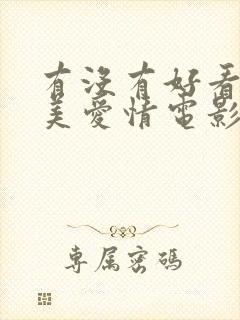 有没有好看
美爱情电影
专属密码